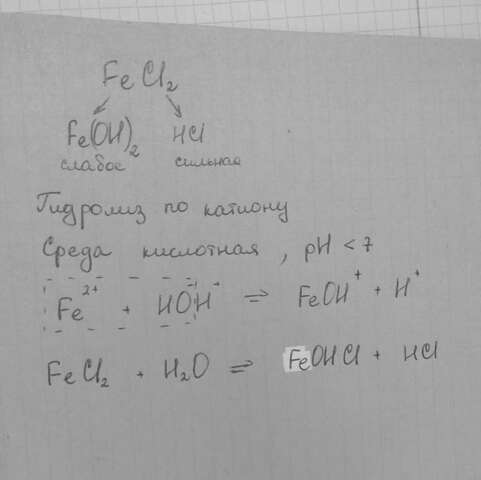 FeCl₂
Fe(OH)₂ HCl
слабое сильная
Гидролиз по катиону
Среда кислотная, pH < 7
Fe²⁺ + HOH⁻ ⇌ FeOH⁺ + H⁺
FeCl₂ + H₂O ⇌ FeOHCl + HCl